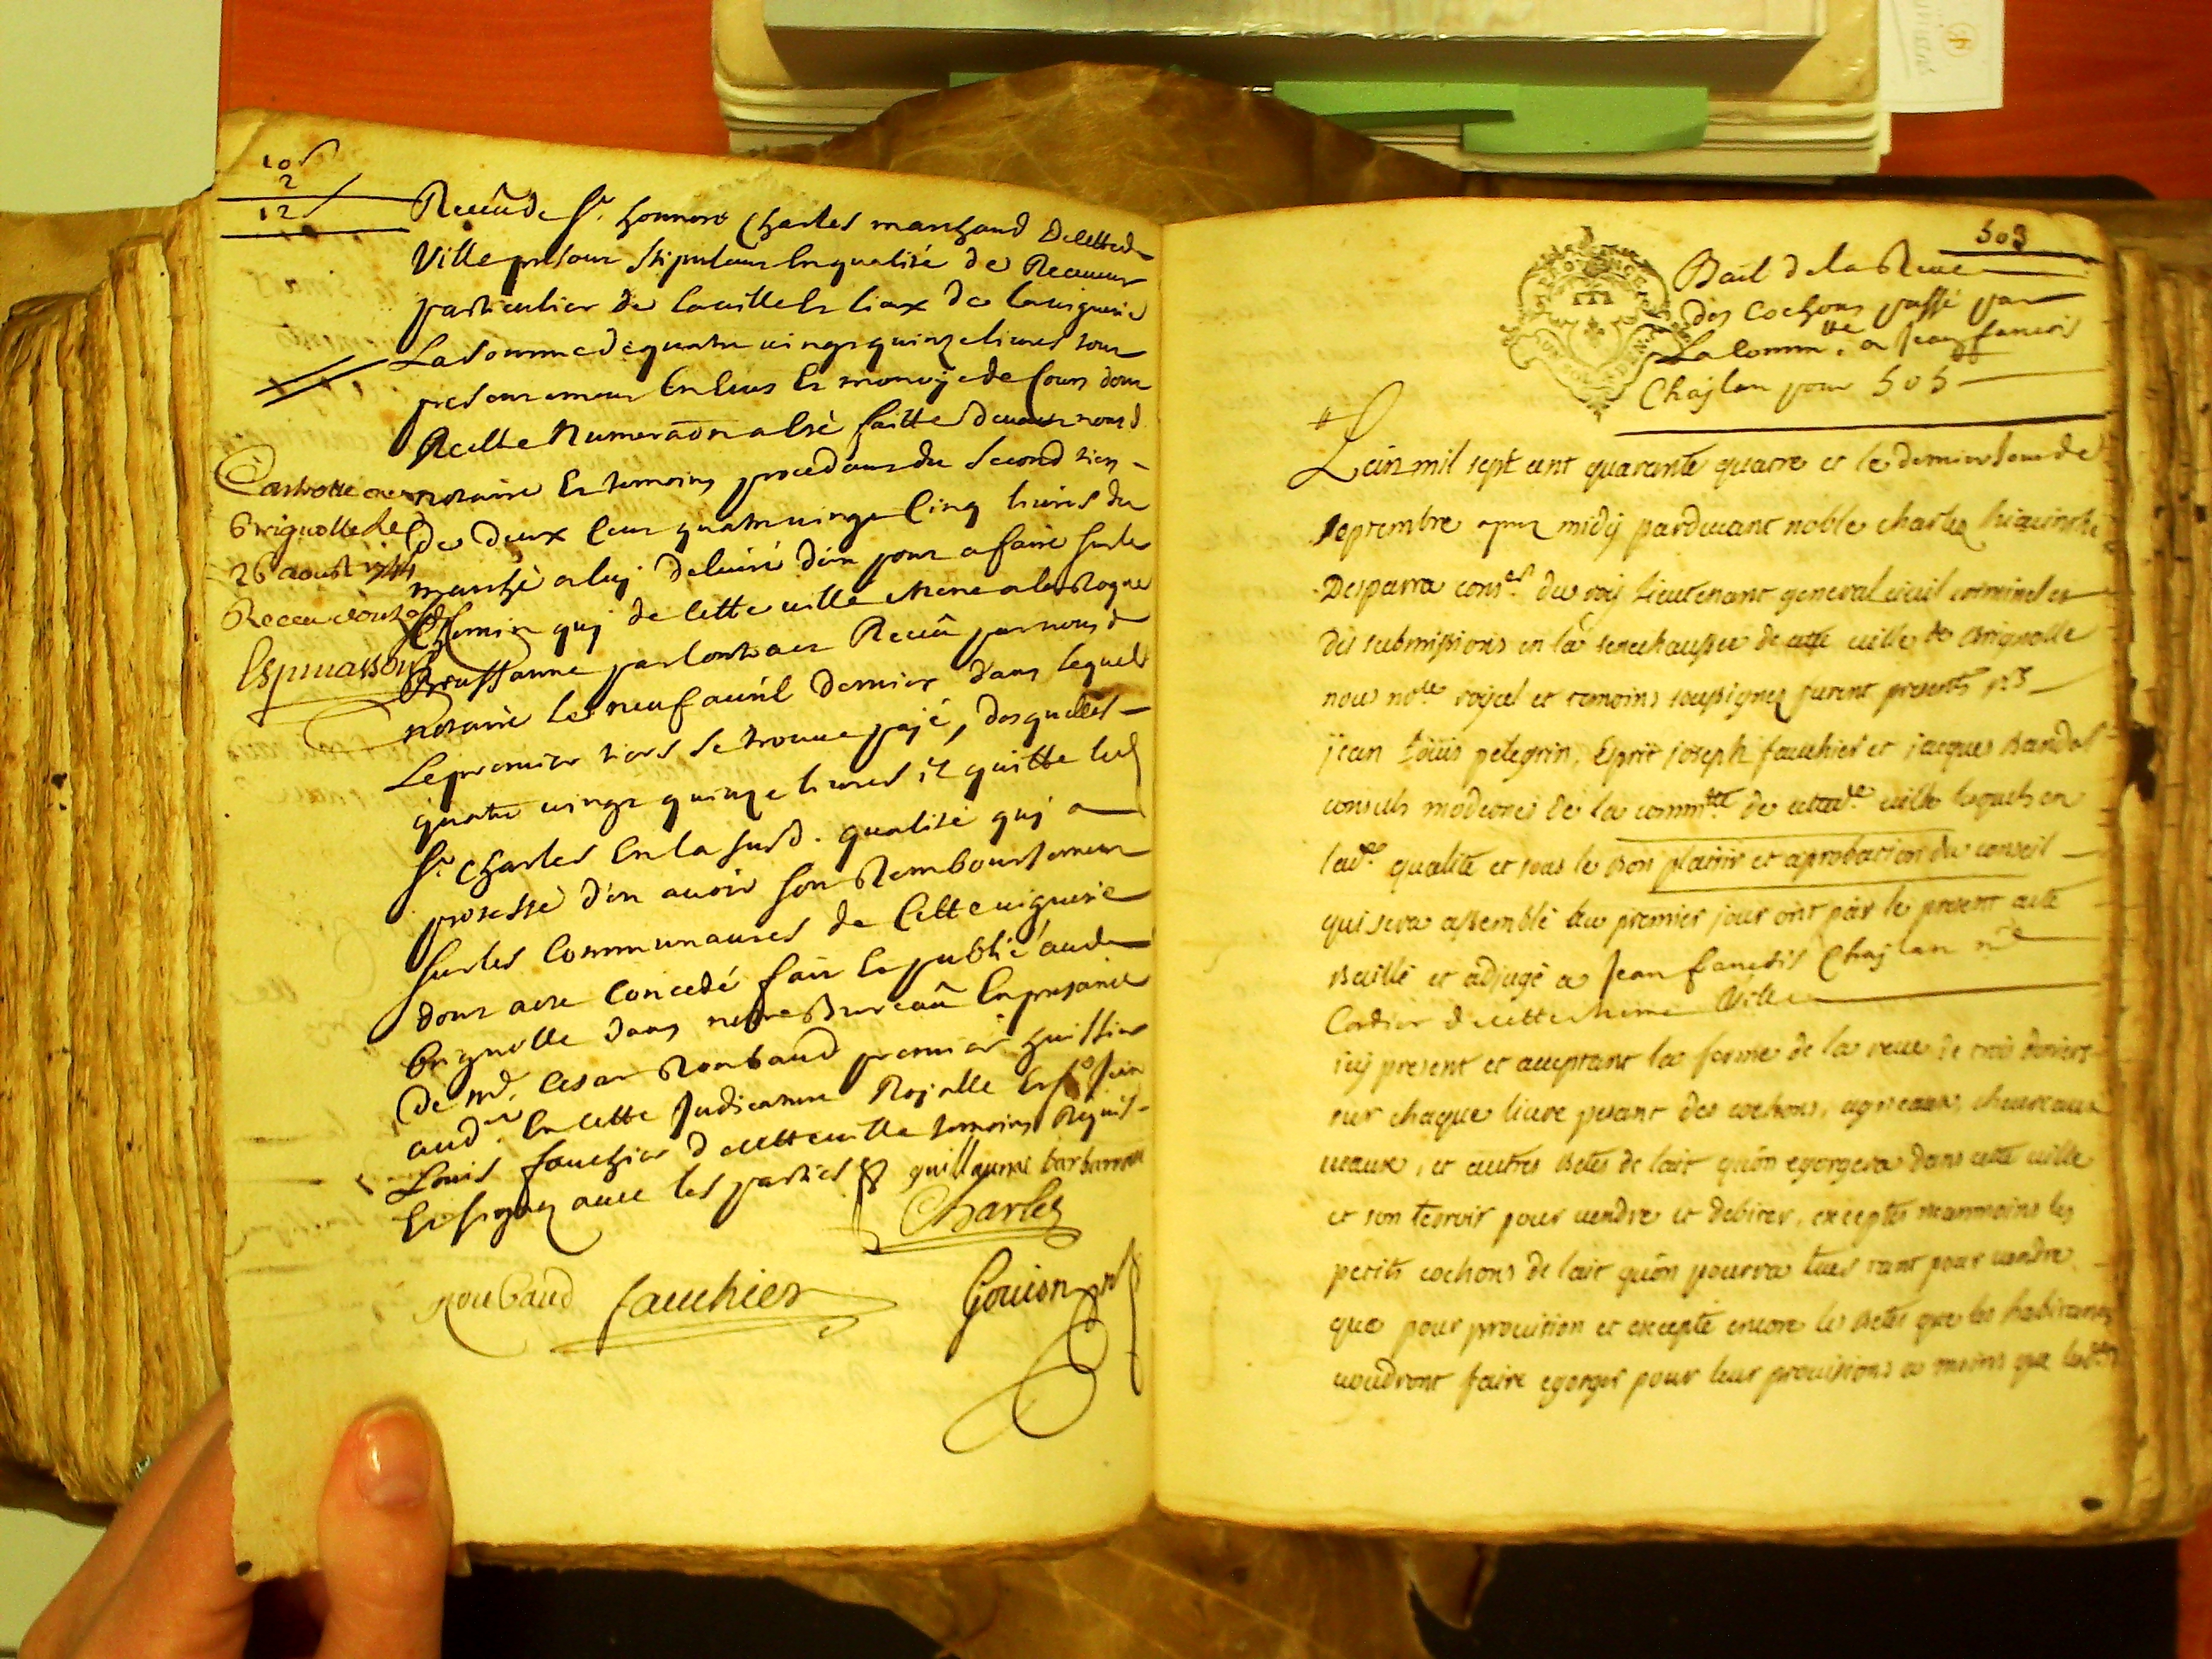 10 s
2
12 s
Receu de Sr. honnore Charles marchand de cette de
Ville presant stipulant en qualité de Receveur
particulier de la ville et lieux de la viguerie
La somme de quatre vingt quinze livres tour
presentement en Ecus et monoye de Cours dont
Reelle Numeraon a esté faitte devant nousd.
notaire et temoins procedant du second tiers
de deux Cens quatre vingt Cinq livres du
marché a luy delivré d'un pont a faire sur le
Chemin quj de cette ville mene a la Roque
Broussanne par contract Receu par nousd
notaire le neuf avril dernier dans lequel
Le premier tiers se trouve payé, desquelles
quatre vingt quinze livres il quitte led
Sr. Charles En la susd. qualité quj a
protesté d'en avoir son Remboursement
sur les Communautés de Cette viguerie
dont acte Concedé fait et publié aud
brignolle dans nostre Bureau En presance
de md. Cesar Roubaud premier huissier
aud. En cette Judicature Rojalle et Sr Jean
Louis fauchier de cette ville temoins Requis
Et signez avec les parties guillaume barbaroux
Charles
roubaud fauchier Gouion
Controllé a
Brignolle le
26 aoust 1744
Receu douze s
Espinassou
503
Bail de la Reve
des Cochons passé par
La Comm.te a Jean francois
Chajlan pour 505
L'an mil sept cent quarante quatre et le dernier Jour de
septembre apres midy pardevant noble charles hiacinthe
Desparra cons.er du roy Lieutenant general civil criminel et
des submissions en la senechaussée de cette ville de Brignolle
nous no.re royal et temoins soussignez furent presents srs
jean Loüis pelegrin, Esprit joseph fauchier et jacques Bandol
consuls modernes de la comm.té de cetted.e ville lesquels en
lad.e qualité et sous le Bon plaisir et aprobation du conseil
qui sera assemblé au premier jour ont par le present acte
Baillé et adjugé a Jean francois Chajlan m.e
Cordier de cette meme Ville
icy present et acceptant la ferme de la reve de trois deniers
sur chaque livre pesant des cochons, agneaux, chevreaux
veaux, et autres Betes de lait qu'on egorgera dans cette ville
et son terroir pour vendre et debiter, exceptés neanmoins les
petits cochons de lait qu'on pourra tuer tant pour vendre
que pour provision et excepté encore les Betes que les habitants
voudront faire egorger pour leur provisions a moins que